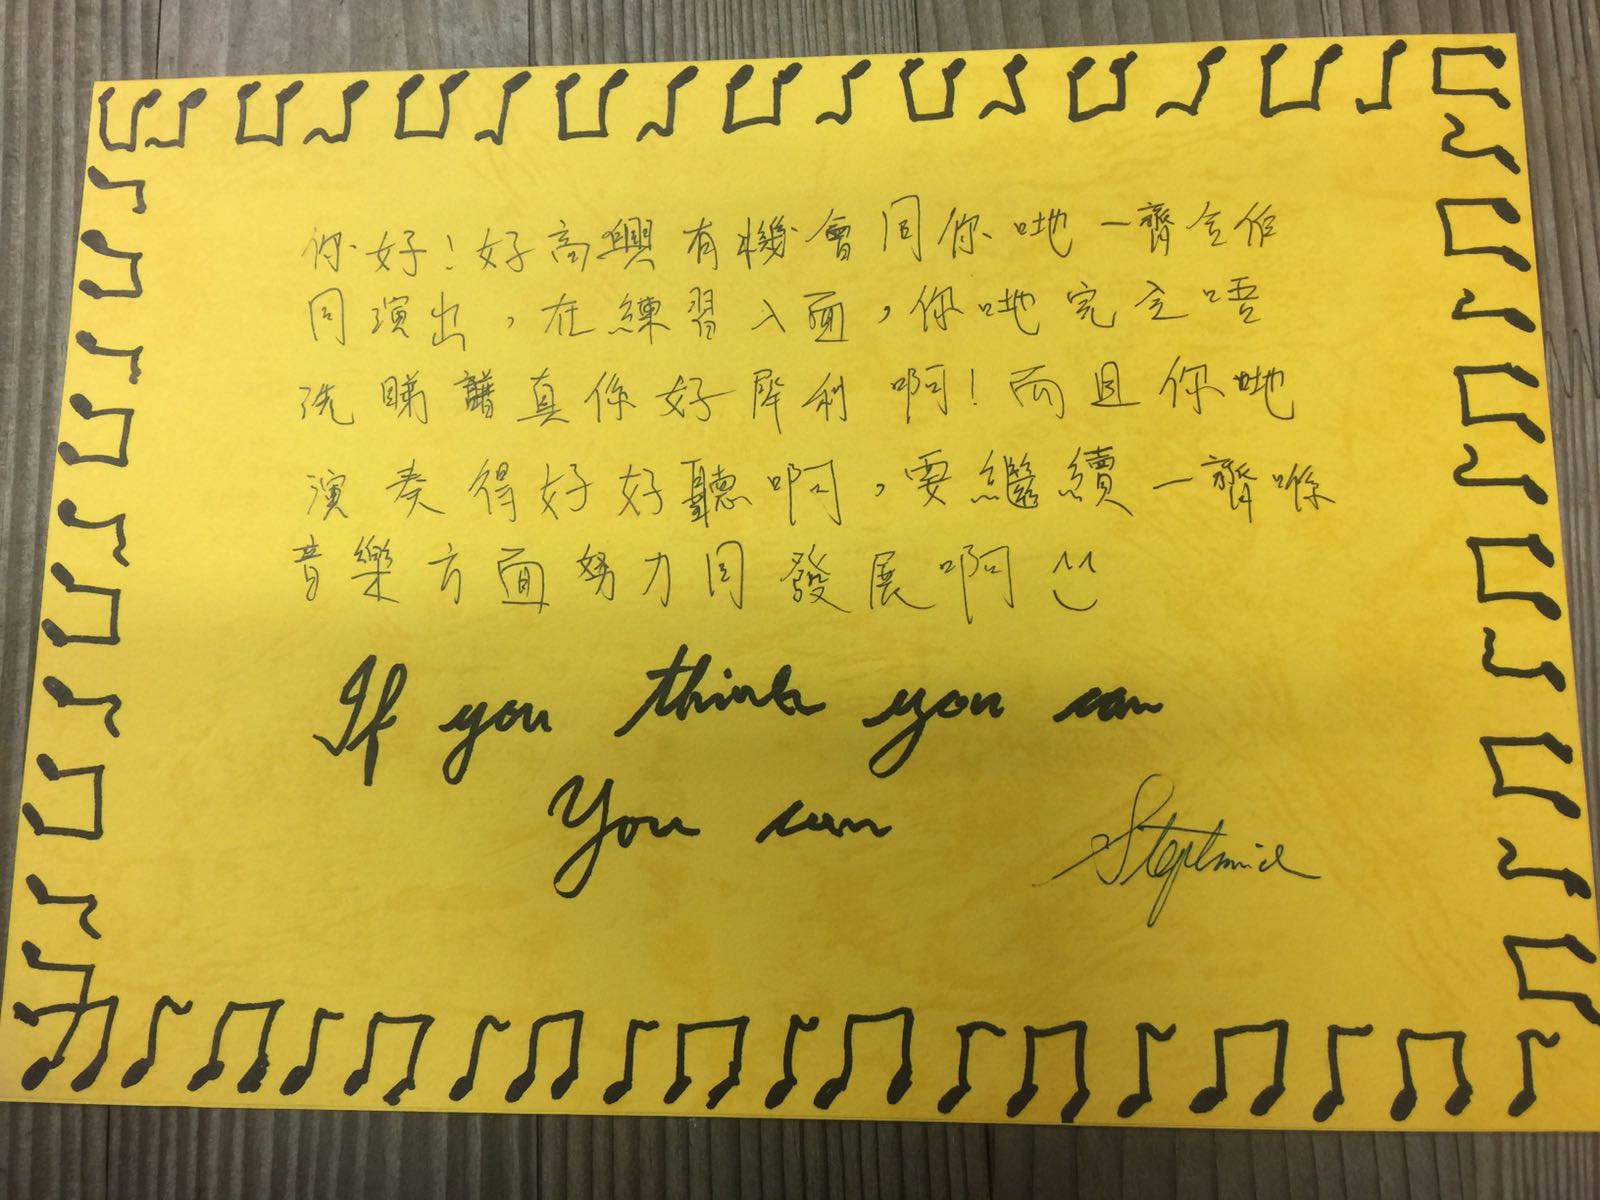 你好！好高興有機會同你哋一齊合作
同演出，在練習入面，你哋完全唔
洗睇譜真係好犀利啊！而且你哋
演奏得好好聽啊，要繼續一齊喺
音樂方面努力同發展啊
If you think you can
You can
Stephanie